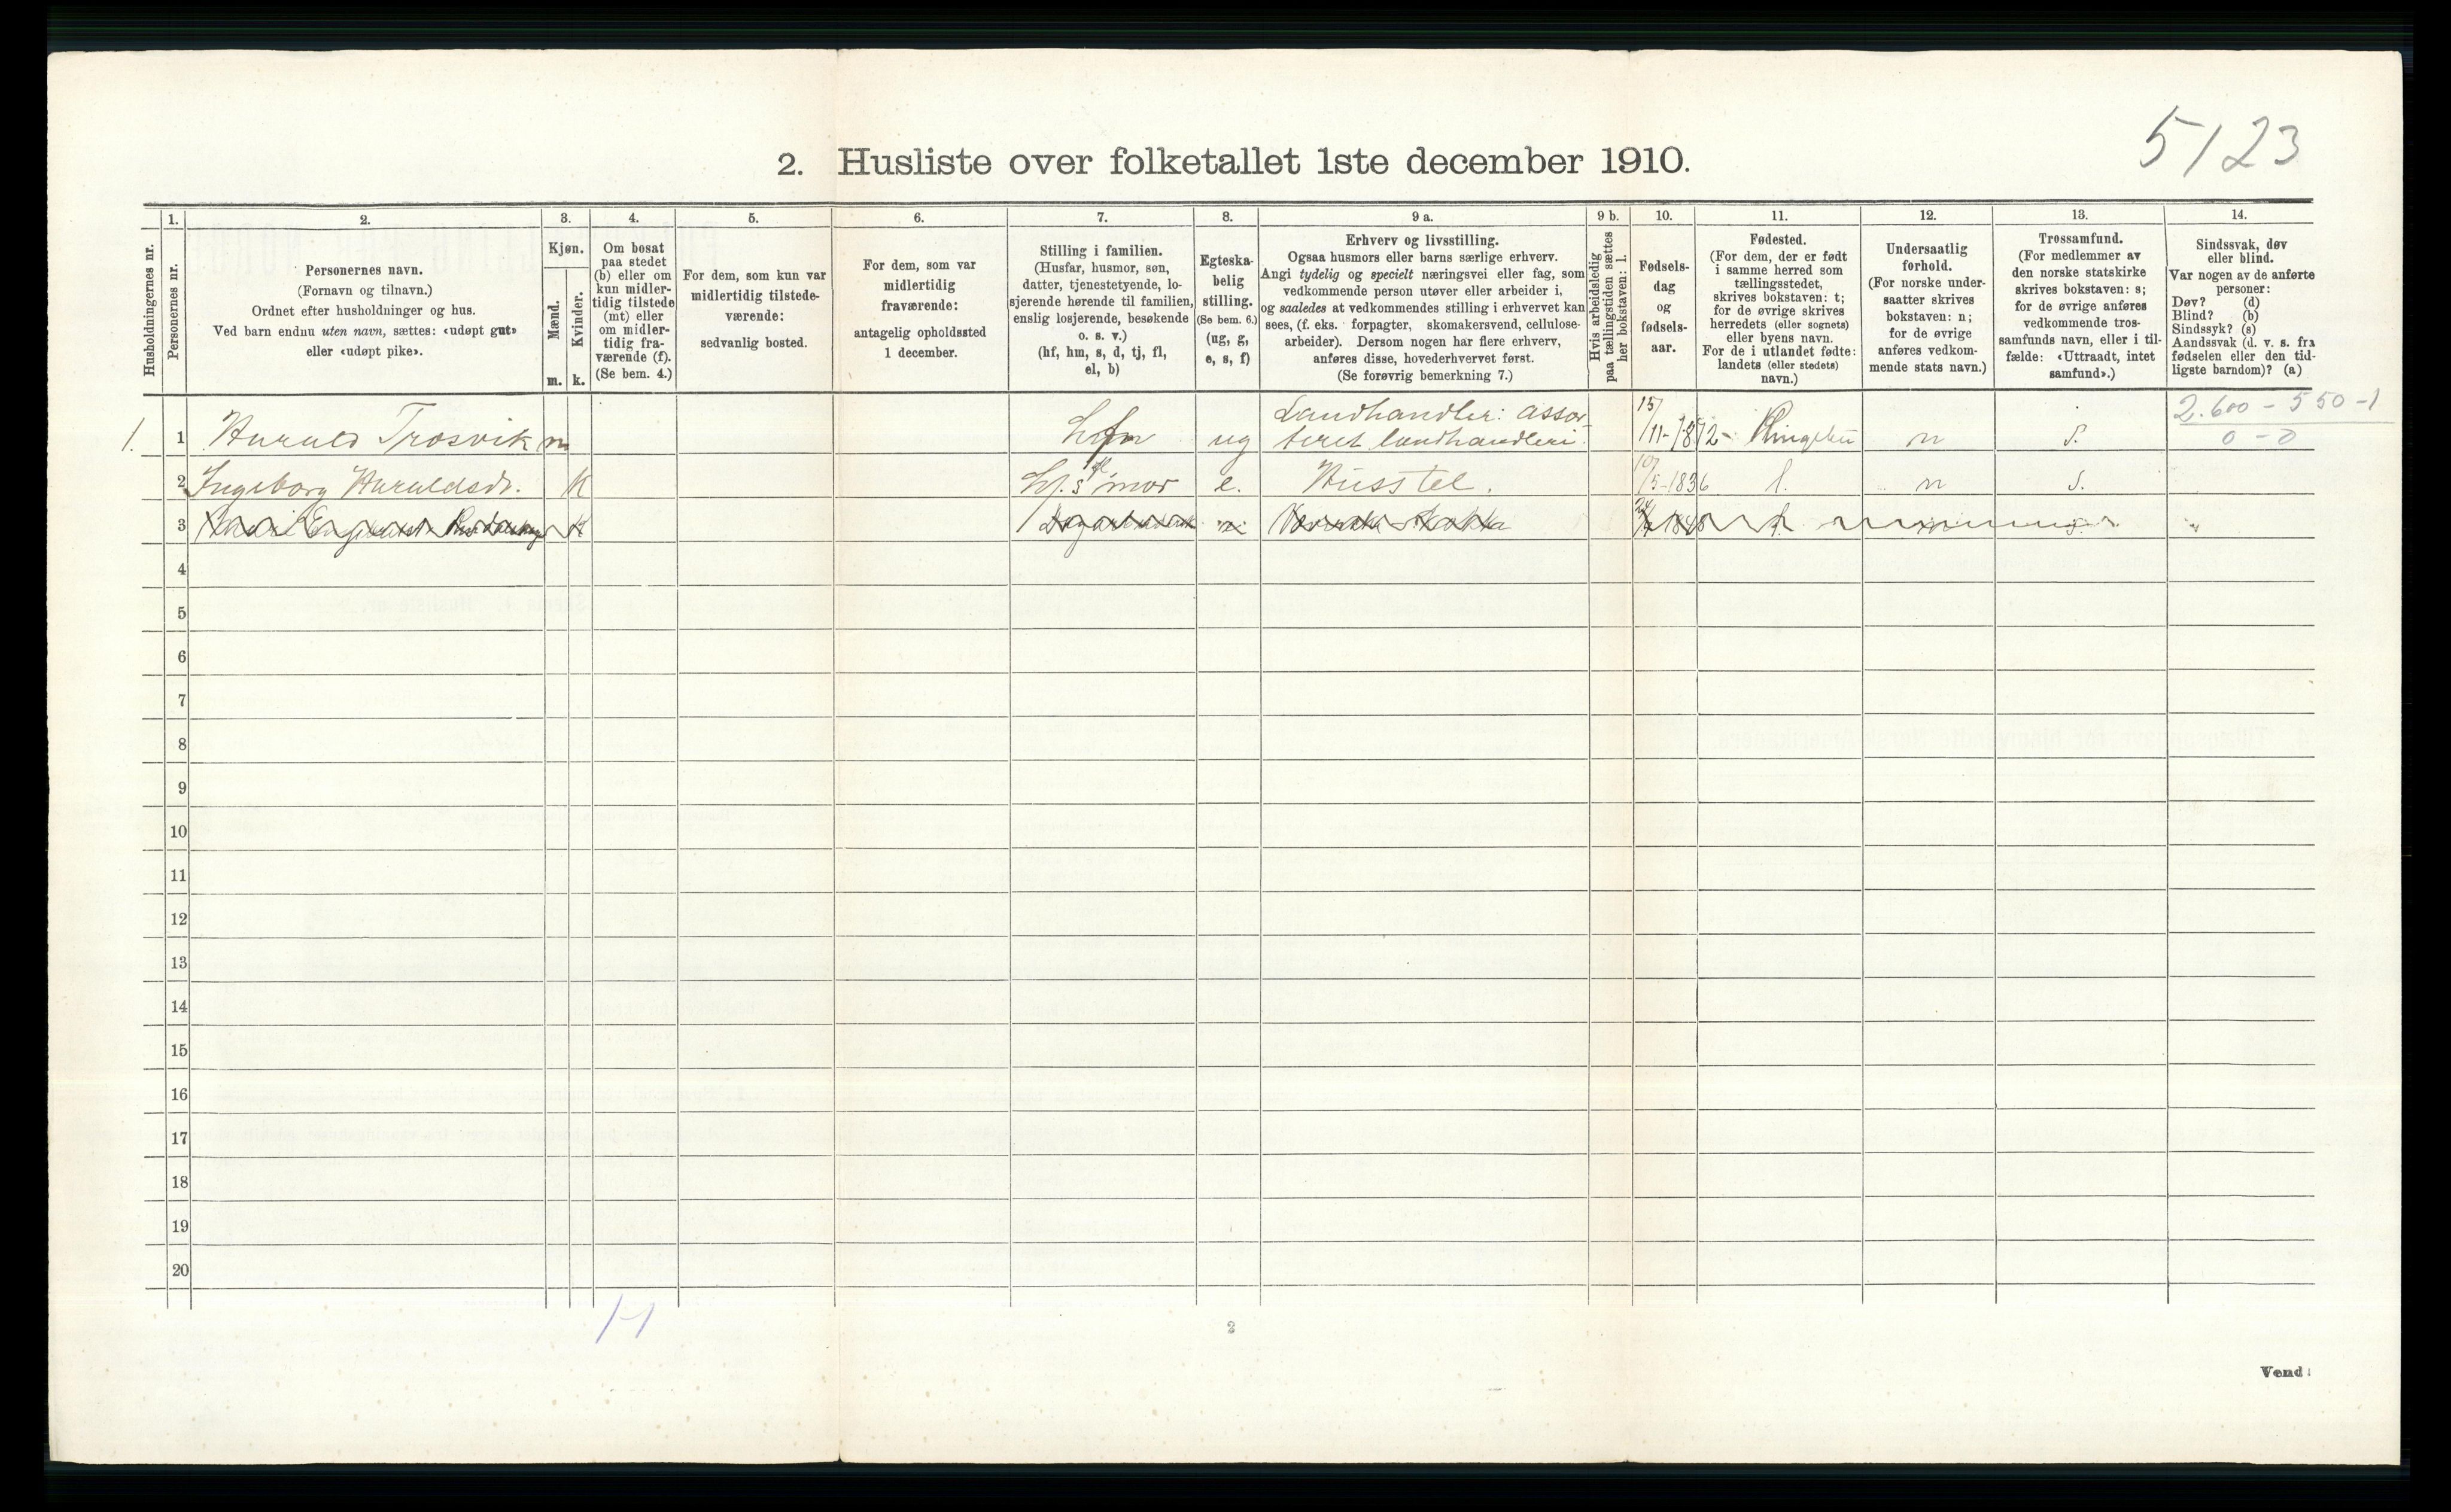 5/23
2. Husliste over folketallet 1ste december 1910.
Husholdningernes nr.
1.
Personernes nr.
2.
Personernes navn.
(Fornavn og tilnavn.)
Ordnet efter husholdninger og hus.
Ved barn endnu uten navn, sættes: «udøpt gut»
eller «udøpt pike».
3.
Kjøn.
Mænd.
Kvinder.
m.
k.
4.
Om bosat
paa stedet
(b) eller om
kun midler-
tidig tilstede
(mt) eller
om midler-
tidig fra-
værende (f).
(Se bem. 4.)
5.
For dem, som kun var
midlertidig tilstede-
værende:
sedvanlig bosted.
6.
For dem, som var
midlertidig
fraværende:
antagelig opholdssted
1 december.
7.
Stilling i familien.
(Husfar, husmor, søn,
datter, tjenestetyende, lo-
sjerende hørende til familien,
enslig losjerende, besøkende
o. s. v.)
(hf, hm, s, d, tj, fl,
el, b)
8.
Egteska-
belig
stilling.
(Se bem. 6.)
(ug, g,
e, s, f)
9 a.
Erhverv og livsstilling.
Ogsaa husmors eller barns særlige erhverv.
Angi tydelig og specielt næringsvei eller fag, som
vedkommende person utøver eller arbeider i,
og saaledes at vedkommendes stilling i erhvervet kan
sees, (f. eks. forpagter, skomakersvend, cellulose-
arbeider). Dersom nogen har flere erhverv,
anføres disse, hovederhvervet først.
(Se forøvrig bemerkning 7.)
9 b.
Hvis arbeidsledig
paa tællingstiden sættes
her bokstaven: l.
10.
Fødsels-
dag
og
fødsels-
aar.
11.
Fødested.
(For dem, der er født
i samme herred som
tællingsstedet,
skrives bokstaven: t;
for de øvrige skrives
herredets (eller sognets)
eller byens navn.
For de i utlandet fødte:
landets (eller stedets)
navn.)
12.
Undersaatlig
forhold.
(For norske under-
saatter skrives
bokstaven: n;
for de øvrige
anføres vedkom-
mende stats navn.)
13.
Trossamfund.
(For medlemmer av
den norske statskirke
skrives bokstaven: s;
for de øvrige anføres
vedkommende tros-
samfunds navn, eller i til-
fælde: «Uttraadt, intet
samfund».)
14.
Sindssvak, døv
eller blind.
Var nogen av de anførte
personer:
Døv? (d)
Blind? (b)
Sindssyk? (s)
Aandssvak (d. v. s. fra
fødselen eller den tid-
ligste barndom)? (a)
2.600 - 550 - 1
0 - 0
1. 1 Harald Trosvik m ug Landhandler: assor-
teret landhandleri. 15/11-1872 Ringebu n s.
2 Ingeborg Haraldsdr. k hf.s mor e. Husstel. 10/5-1836 t. n s.
3 k
4
5
6
7
8
9
10
11
12
13
14
15
16
17
18
19
20
1-1
2
Vend!